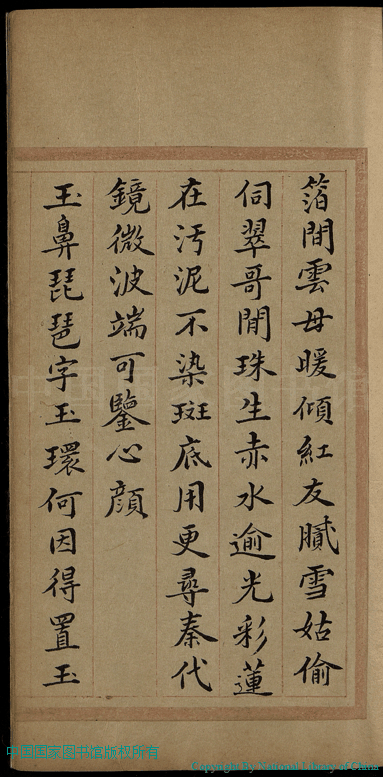 箔間雲母暖傾紅友膩雪姑偷
伺翠哥閒珠生赤水逾光彩蓮
在汚泥不染斑底用更尋秦代
鏡微波端可鑒心顔
玉鼻琵琶字玉環何因得置玉
中国国家图书馆版权所有
Copyright By National Library of China